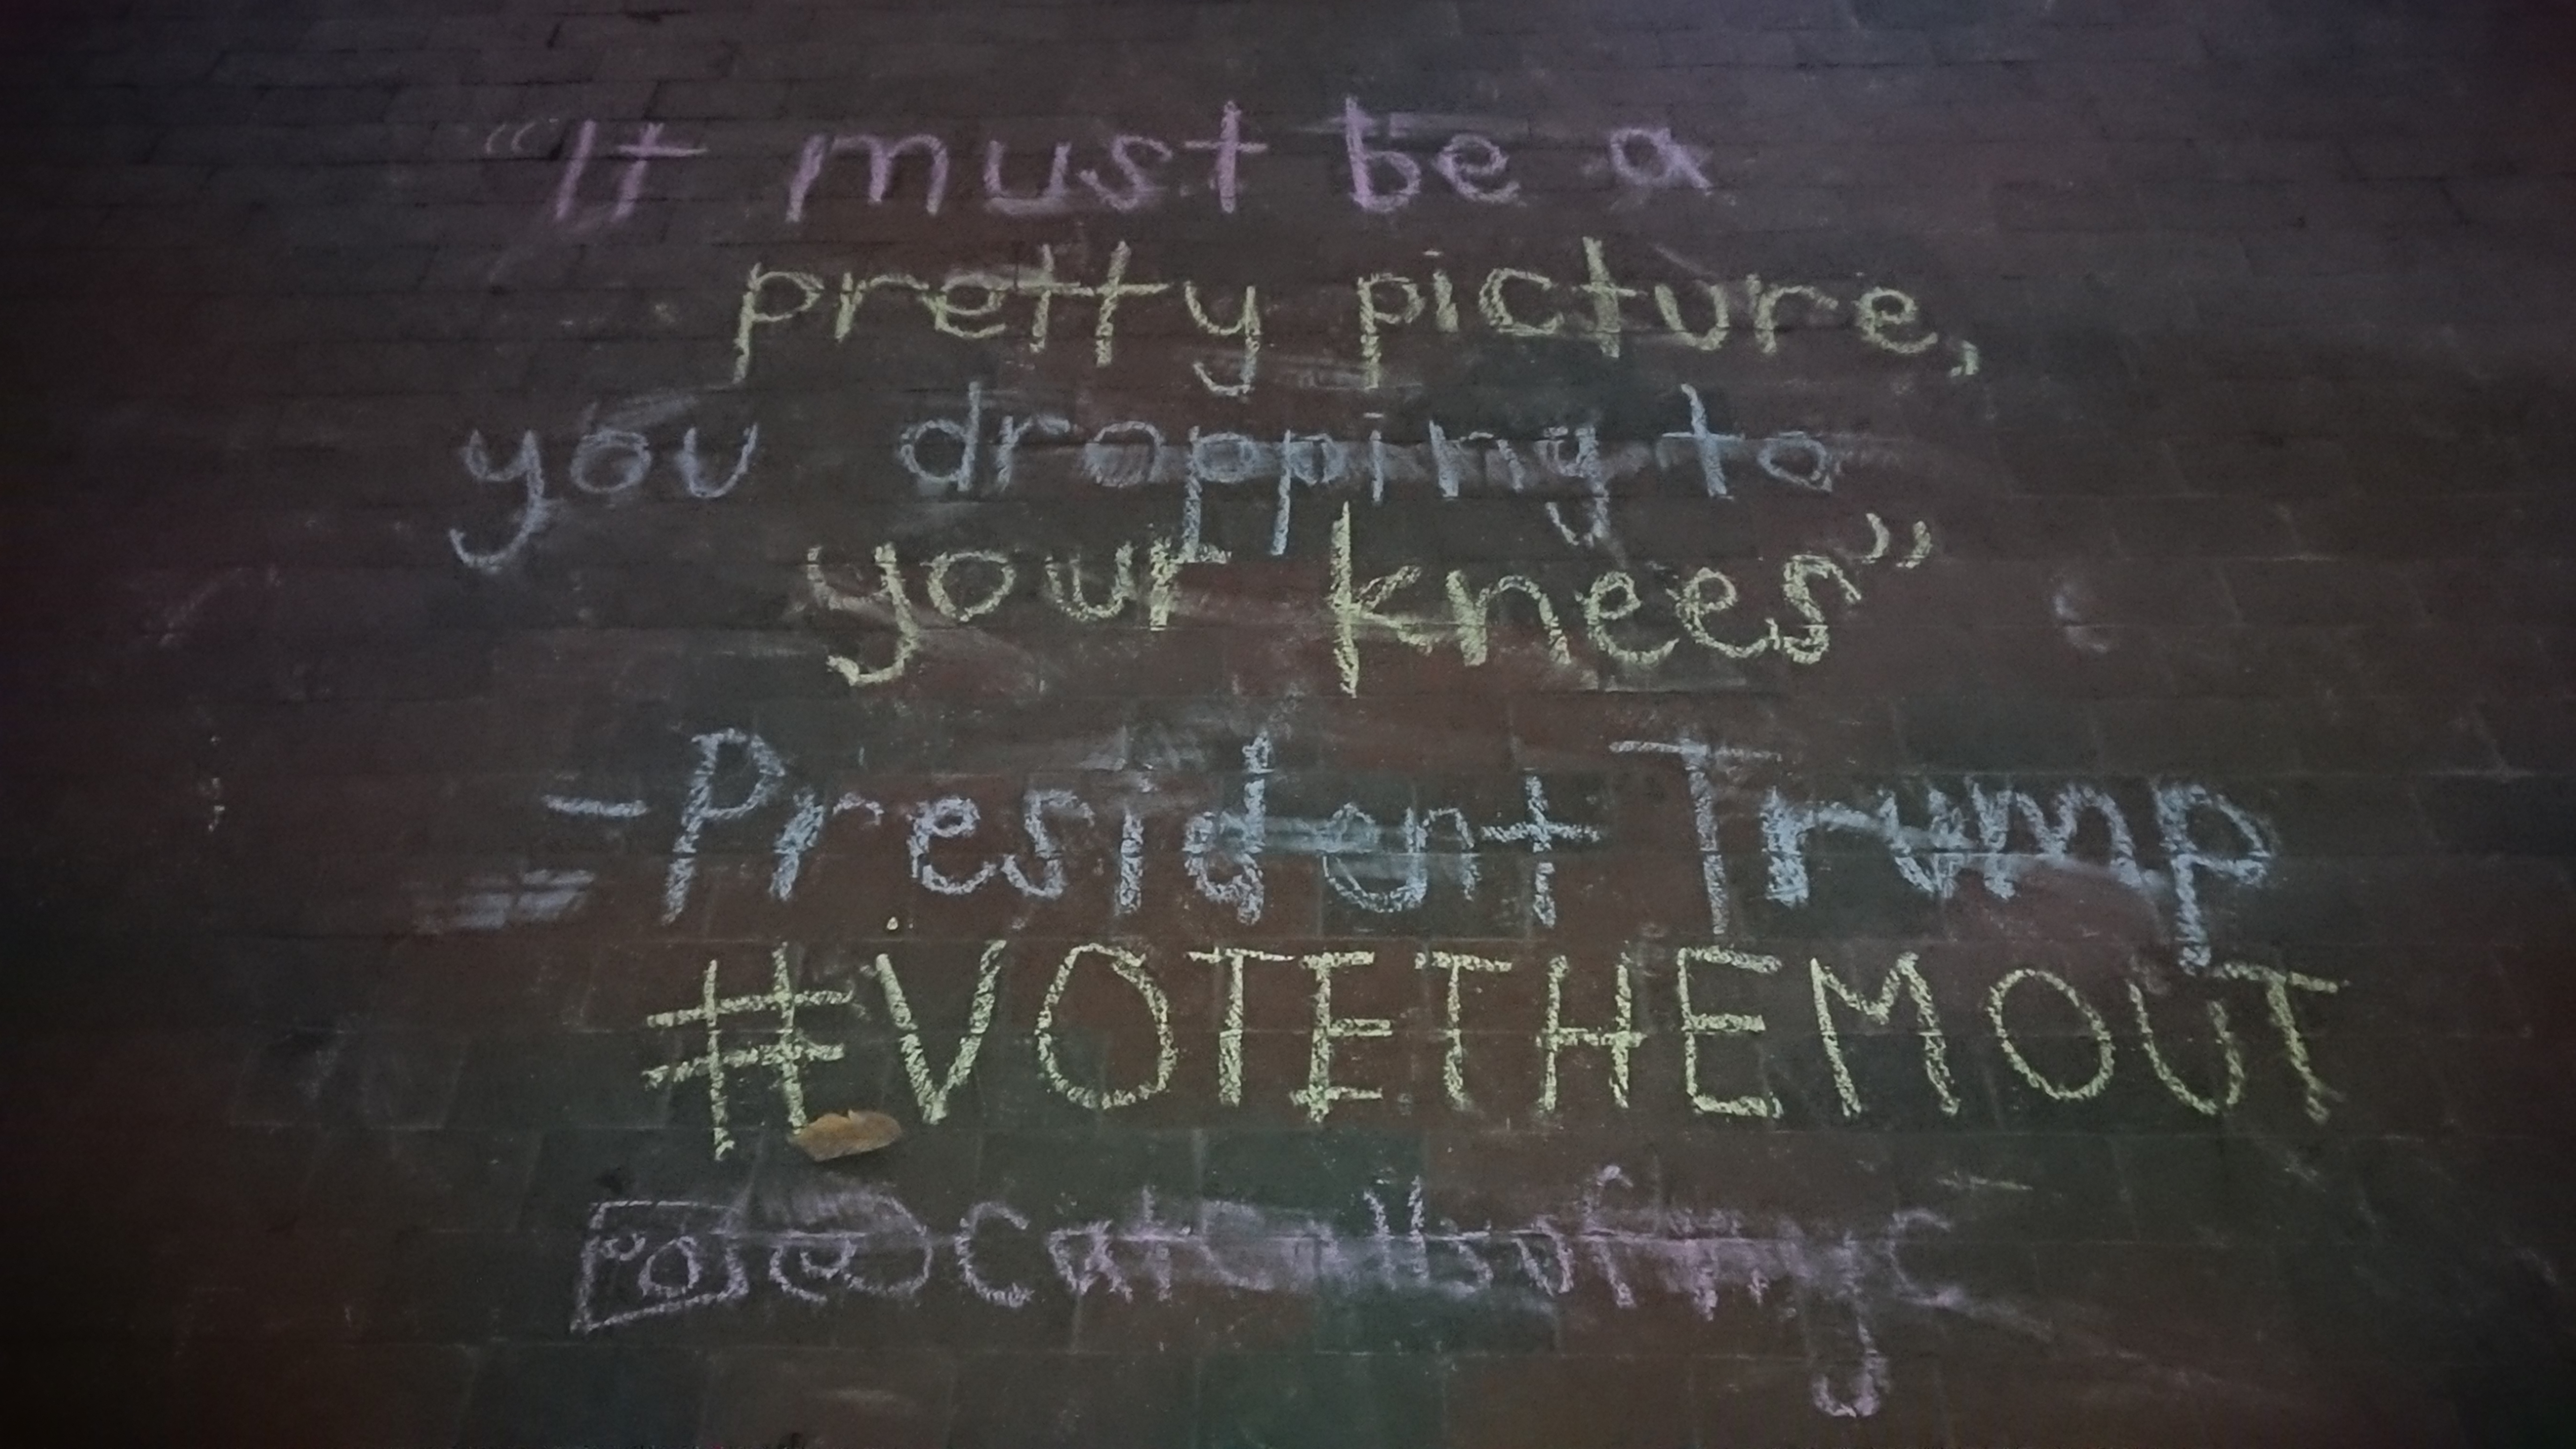 “It must be a
pretty picture,
you dropping to
your knees”
-President Trump
#VOTETHEMOUT
@catcallsofnyc